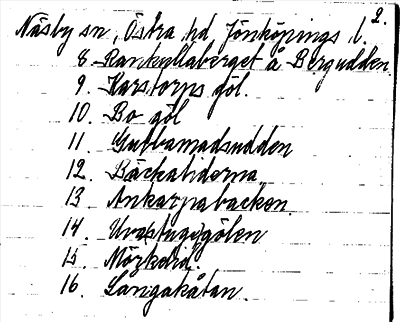 2.
Näsby sn, Östra hd, Jönköpings l.
8. Rankullaberget å Bergudden.
9. Karstorps göl.
10. Bo göl
11. Gubbamadsudden
12. Bäckaliderna
13 Ankarpabacken.
14. gölen
15
16. Långakåtan.